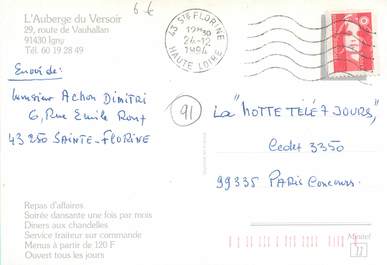 L'Auberge du Versoir
29, route de Vauhallan
91430 Igny
Tél. 60 19 28 49
6 €
43 STE FLORINE
12H30
24-12
1994
HAUTE LOIRE
Envoi de:
Monsieur Achon Dimitri
6, Rue Emile Roux
43 250 SAINTE-FLORINE
91
La "HOTTE TÉLÉ 7 JOURS"
Cedex 3350
99335 PARIS Concours.
Repas d'affaires
Soirée dansante une fois par mois
Diners aux chandelles
Service traiteur sur commande
Menus à partir de 120 F
Ouvert tous les jours